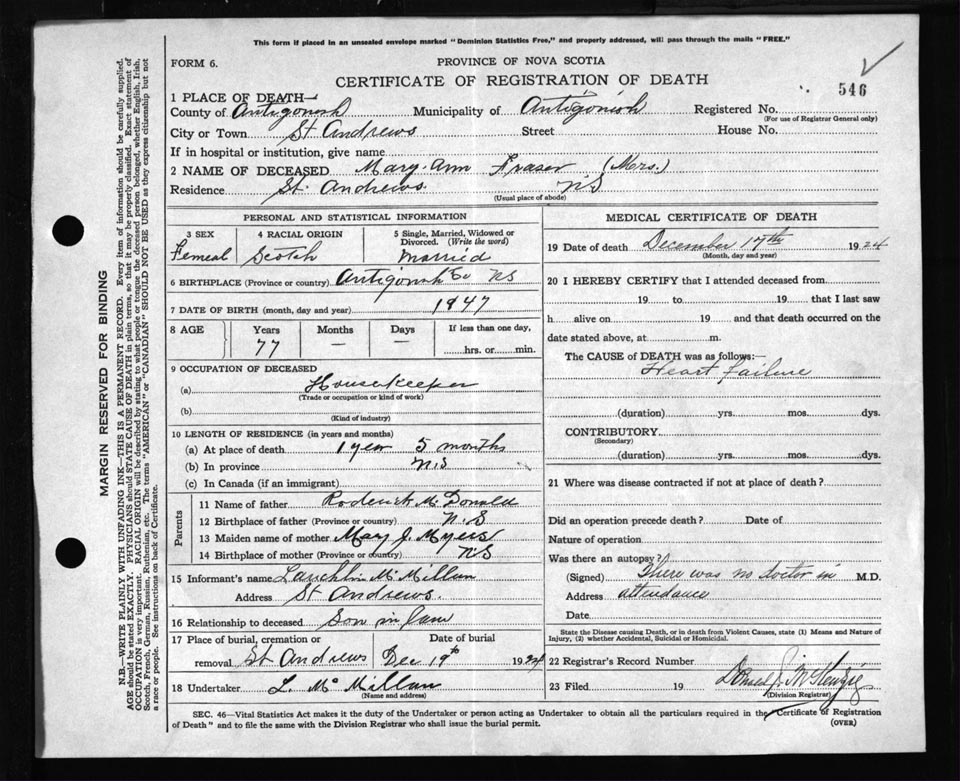 This form if placed in an unsealed envelope marked "Dominion Statistics Free," and properly addressed, will pass through the mails "FREE."
FORM 6.
PROVINCE OF NOVA SCOTIA
CERTIFICATE OF REGISTRATION OF DEATH
546
1 PLACE OF DEATH—
County of Antigonish Municipality of Antigonish Registered No.
(For use of Registrar General only)
City or Town St Andrews Street House No.
If in hospital or institution, give name
2 NAME OF DECEASED Mary Ann Fraser (Mrs.)
Residence St. Andrews NS
(Usual place of abode)
MARGIN RESERVED FOR BINDING
N.B.—WRITE PLAINLY WITH UNFADING INK—THIS IS A PERMANENT RECORD. Every item of information should be carefully supplied.
AGE should be stated EXACTLY. PHYSICIANS should STATE CAUSE OF DEATH in plain terms, so that it may be properly classified. Exact statement of
OCCUPATION is very important. RACIAL ORIGIN will be described by stating to what people or tongue the deceased person belonged, whether English, Irish,
Scotch, French, German, Russian, Ruthenian, etc. The terms "AMERICAN" or "CANADIAN" SHOULD NOT BE USED as they express citizenship but not
a race or people. See instructions on back of Certificate.
PERSONAL AND STATISTICAL INFORMATION
3 SEX 4 RACIAL ORIGIN 5 Single, Married, Widowed or
Divorced. (Write the word)
Femeal Scotch Married
6 BIRTHPLACE (Province or country) Antigonish Co NS
7 DATE OF BIRTH (month, day and year) 1847
8 AGE Years Months Days If less than one day,
77 — — hrs. or min.
9 OCCUPATION OF DECEASED
(a) Housekeeper
(Trade or occupation or kind of work)
(b)
(Kind of industry)
10 LENGTH OF RESIDENCE (in years and months)
(a) At place of death 1 year 5 months
(b) In province N.S
(c) In Canada (if an immigrant)
Parents
11 Name of father Roderick McDonald
12 Birthplace of father (Province or country) N.S
13 Maiden name of mother Mary J. Myers
14 Birthplace of mother (Province or country) NS
15 Informant's name Lauchlin McMillan
Address St Andrews.
16 Relationship to deceased Son in law
17 Place of burial, cremation or Date of burial
removal St Andrews Dec 19th 1924
18 Undertaker L. McMillan
(Name and address)
MEDICAL CERTIFICATE OF DEATH
19 Date of death December 17th 1924
(Month, day and year)
20 I HEREBY CERTIFY that I attended deceased from
19 to 19 that I last saw
h alive on 19 and that death occurred on the
date stated above, at m.
The CAUSE OF DEATH was as follows:—
Heart failure
(duration) yrs. mos. dys.
CONTRIBUTORY
(Secondary)
(duration) yrs. mos. dys.
21 Where was disease contracted if not at place of death?
Did an operation precede death? Date of
Nature of operation
Was there an autopsy?
(Signed) There was no doctor in M.D.
Address attendance
Date
State the Disease causing Death, or in death from Violent Causes, state (1) Means and Nature of
Injury, (2) whether Accidental, Suicidal or Homicidal.
22 Registrar's Record Number
23 Filed 19 Donald J. McKenzie
(Division Registrar)
SEC. 46—Vital Statistics Act makes it the duty of the Undertaker or person acting as Undertaker to obtain all the particulars required in the Certificate of Registration
of Death" and to file the same with the Division Registrar who shall issue the burial permit. (OVER)